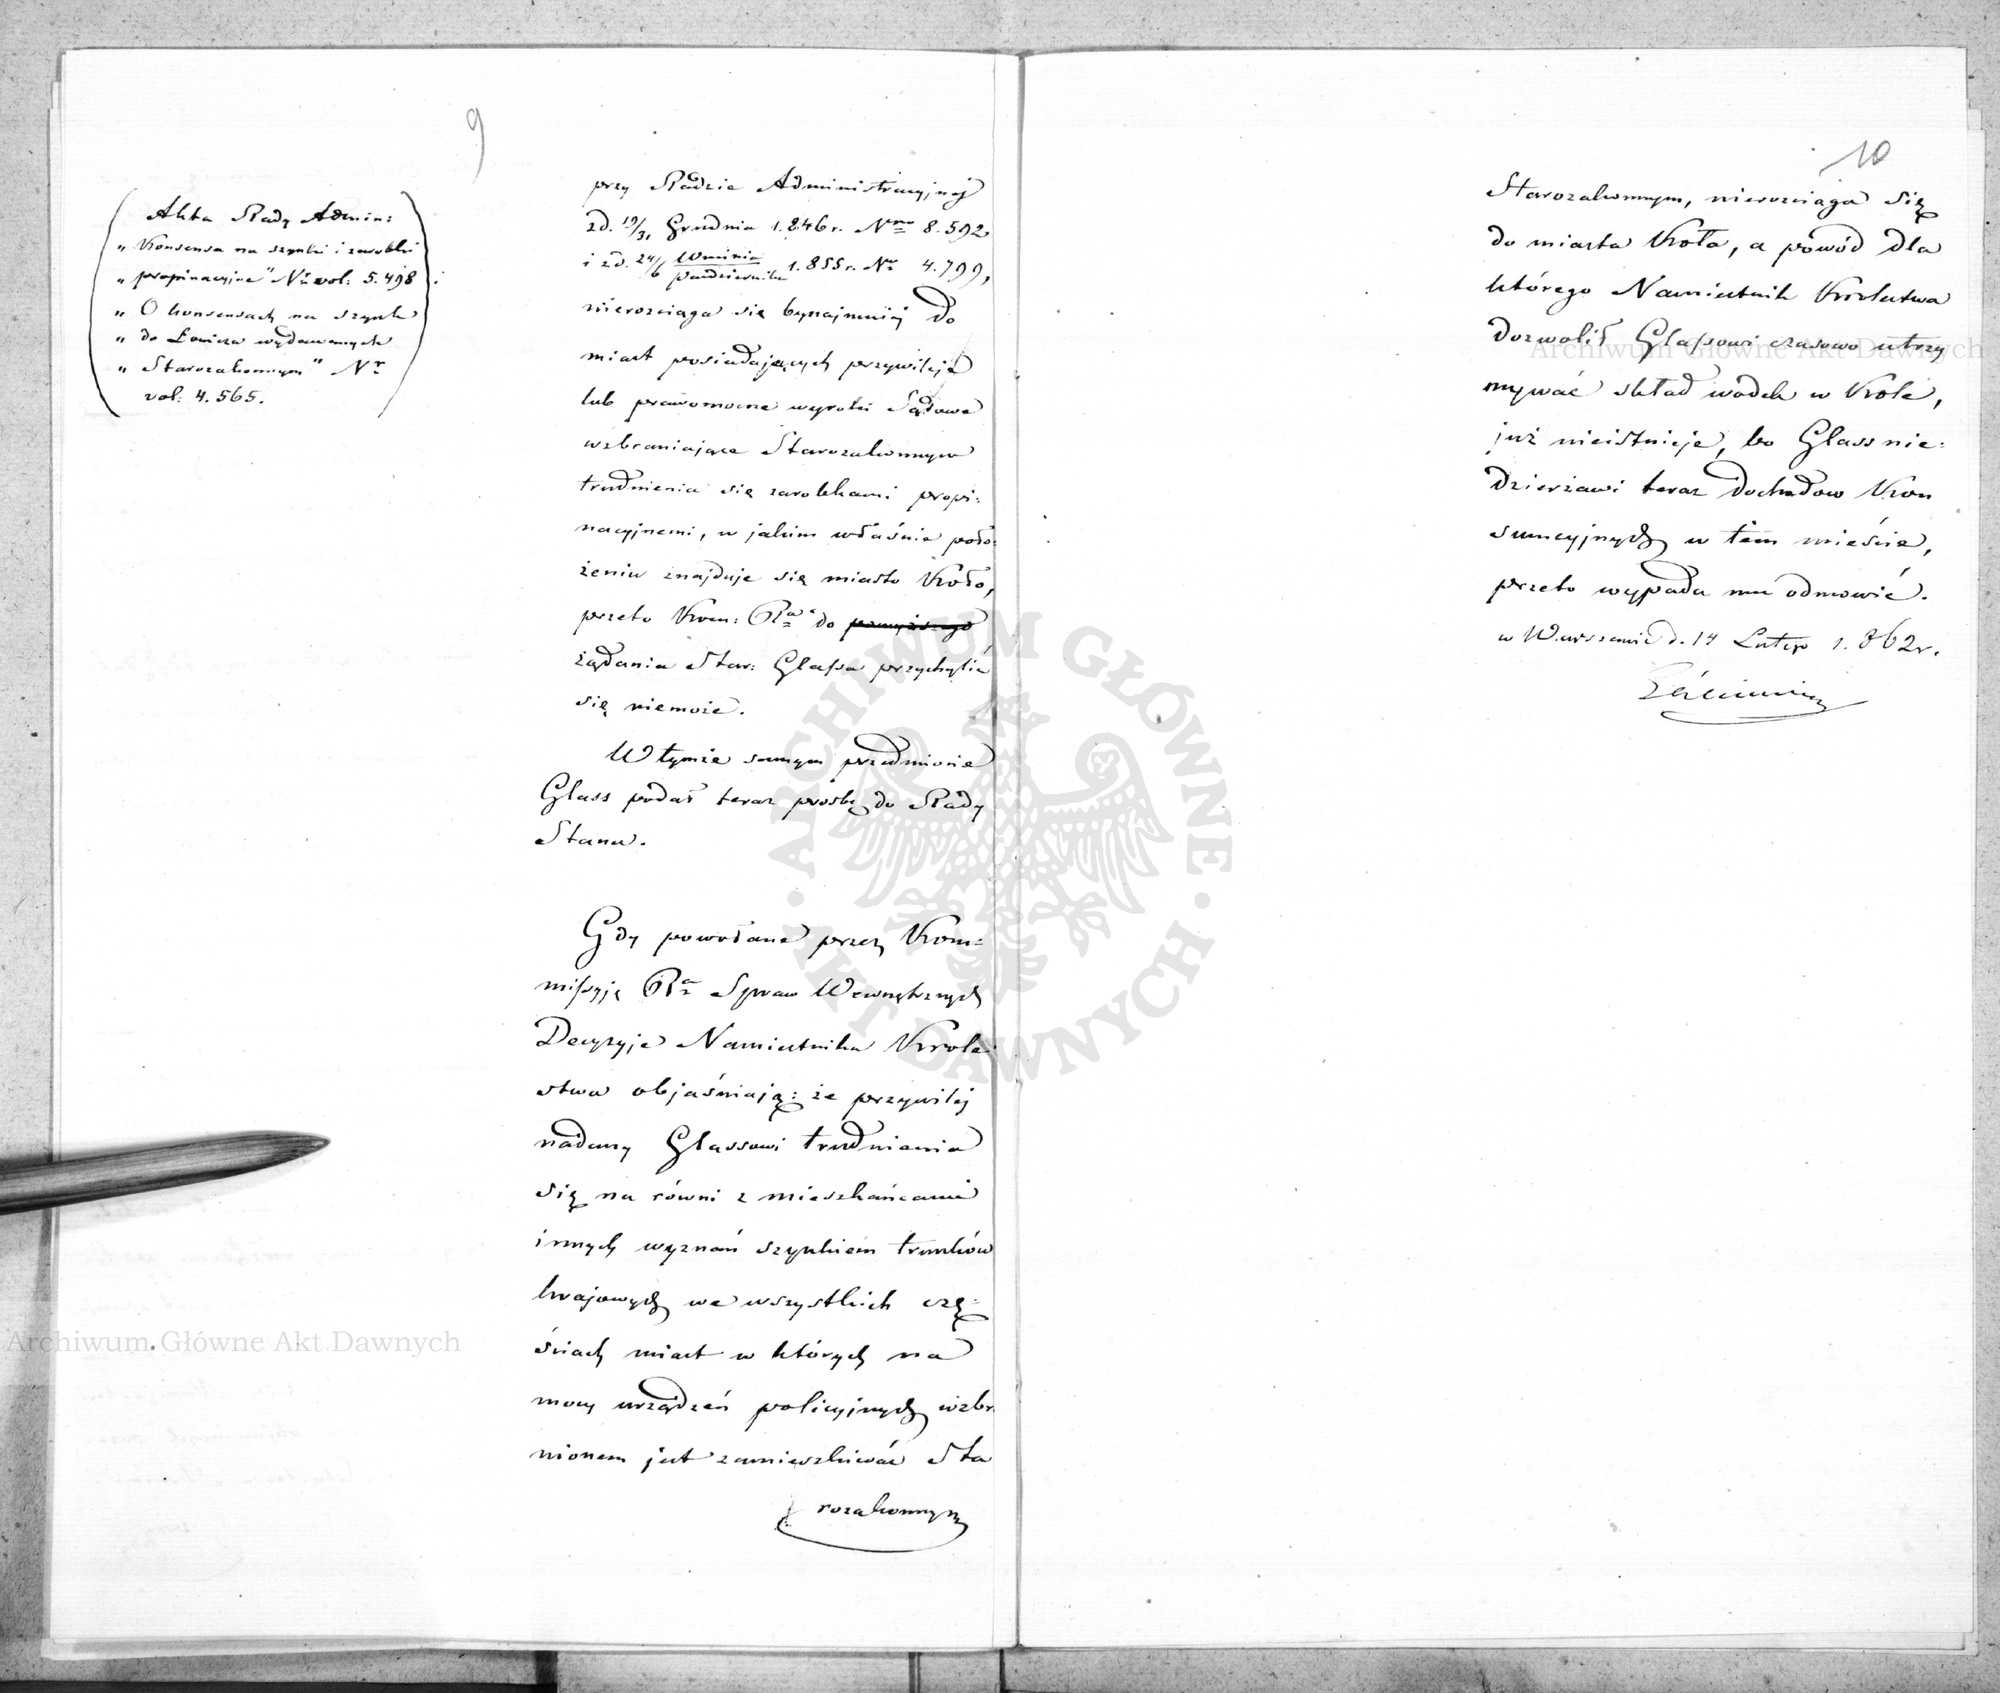 9
Akta Rady Admin:
„ Konsensa na szynki i zarobki
„ propinacyjne" Nr vol: 5.498
„ O konsensach na szynk
„ do Łowicza wydawanych
„ Starozakonnym" Nr
vol: 4.565.
przy Radzie Administracyjnej
zd. 19/31 Grudnia 1.846 r. Nro 8.592
i zd. 24/6 Września/Października 1.855 r. Nr 4.799,
nierozciąga się bynajmniej do
miast posiadających przywileje
lub prawomocne wyroki Sądowe
wzbraniające Starozakonnym
trudnienia się zarobkami propi:
nacyjnemi, w jakim właśnie poło:
żeniu znajduje się miasto Koło,
przeto Kom: Rwa do powyższego
żądania Star: Glassa przychylić
się niemoże.
W tymże samym przedmiocie
Glass podał teraz prośbę do Rady
Stanu.
Gdy powołane przez Kom:
missyję Rz Spraw Wewnętrznych
Decyzyje Namiestnika Króle
stwa objaśniają: że przywilej
nadany Glassowi trudnienia
się na równi z mieszkańcami
innych wyznań szynkiem trunków
krajowych we wszystkich czę:
ściach miast w których na
mocy urządzeń policyjnych wzbr
nionem jest zamieszkiwać Sta
rozakonnym
10
Starozakonnym, nierozciąga się
do miasta Koła, a powód dla
którego Namiestnik Królestwa
dozwolił Glassowi czasowo utrzy
mywać skład wódek w Kole,
już nieistnieje, bo Glass nie:
dzierżawi teraz dochodów Kon
sumcyjnych w tem mieście,
przeto wypada mu odmówić.
w Warszawie d. 14 Lutego 1.862 r.
Archiwum Główne Akt Dawnych
Archiwum Główne Akt Dawnych
ARCHIWUM GŁÓWNE AKT DAWNYCH